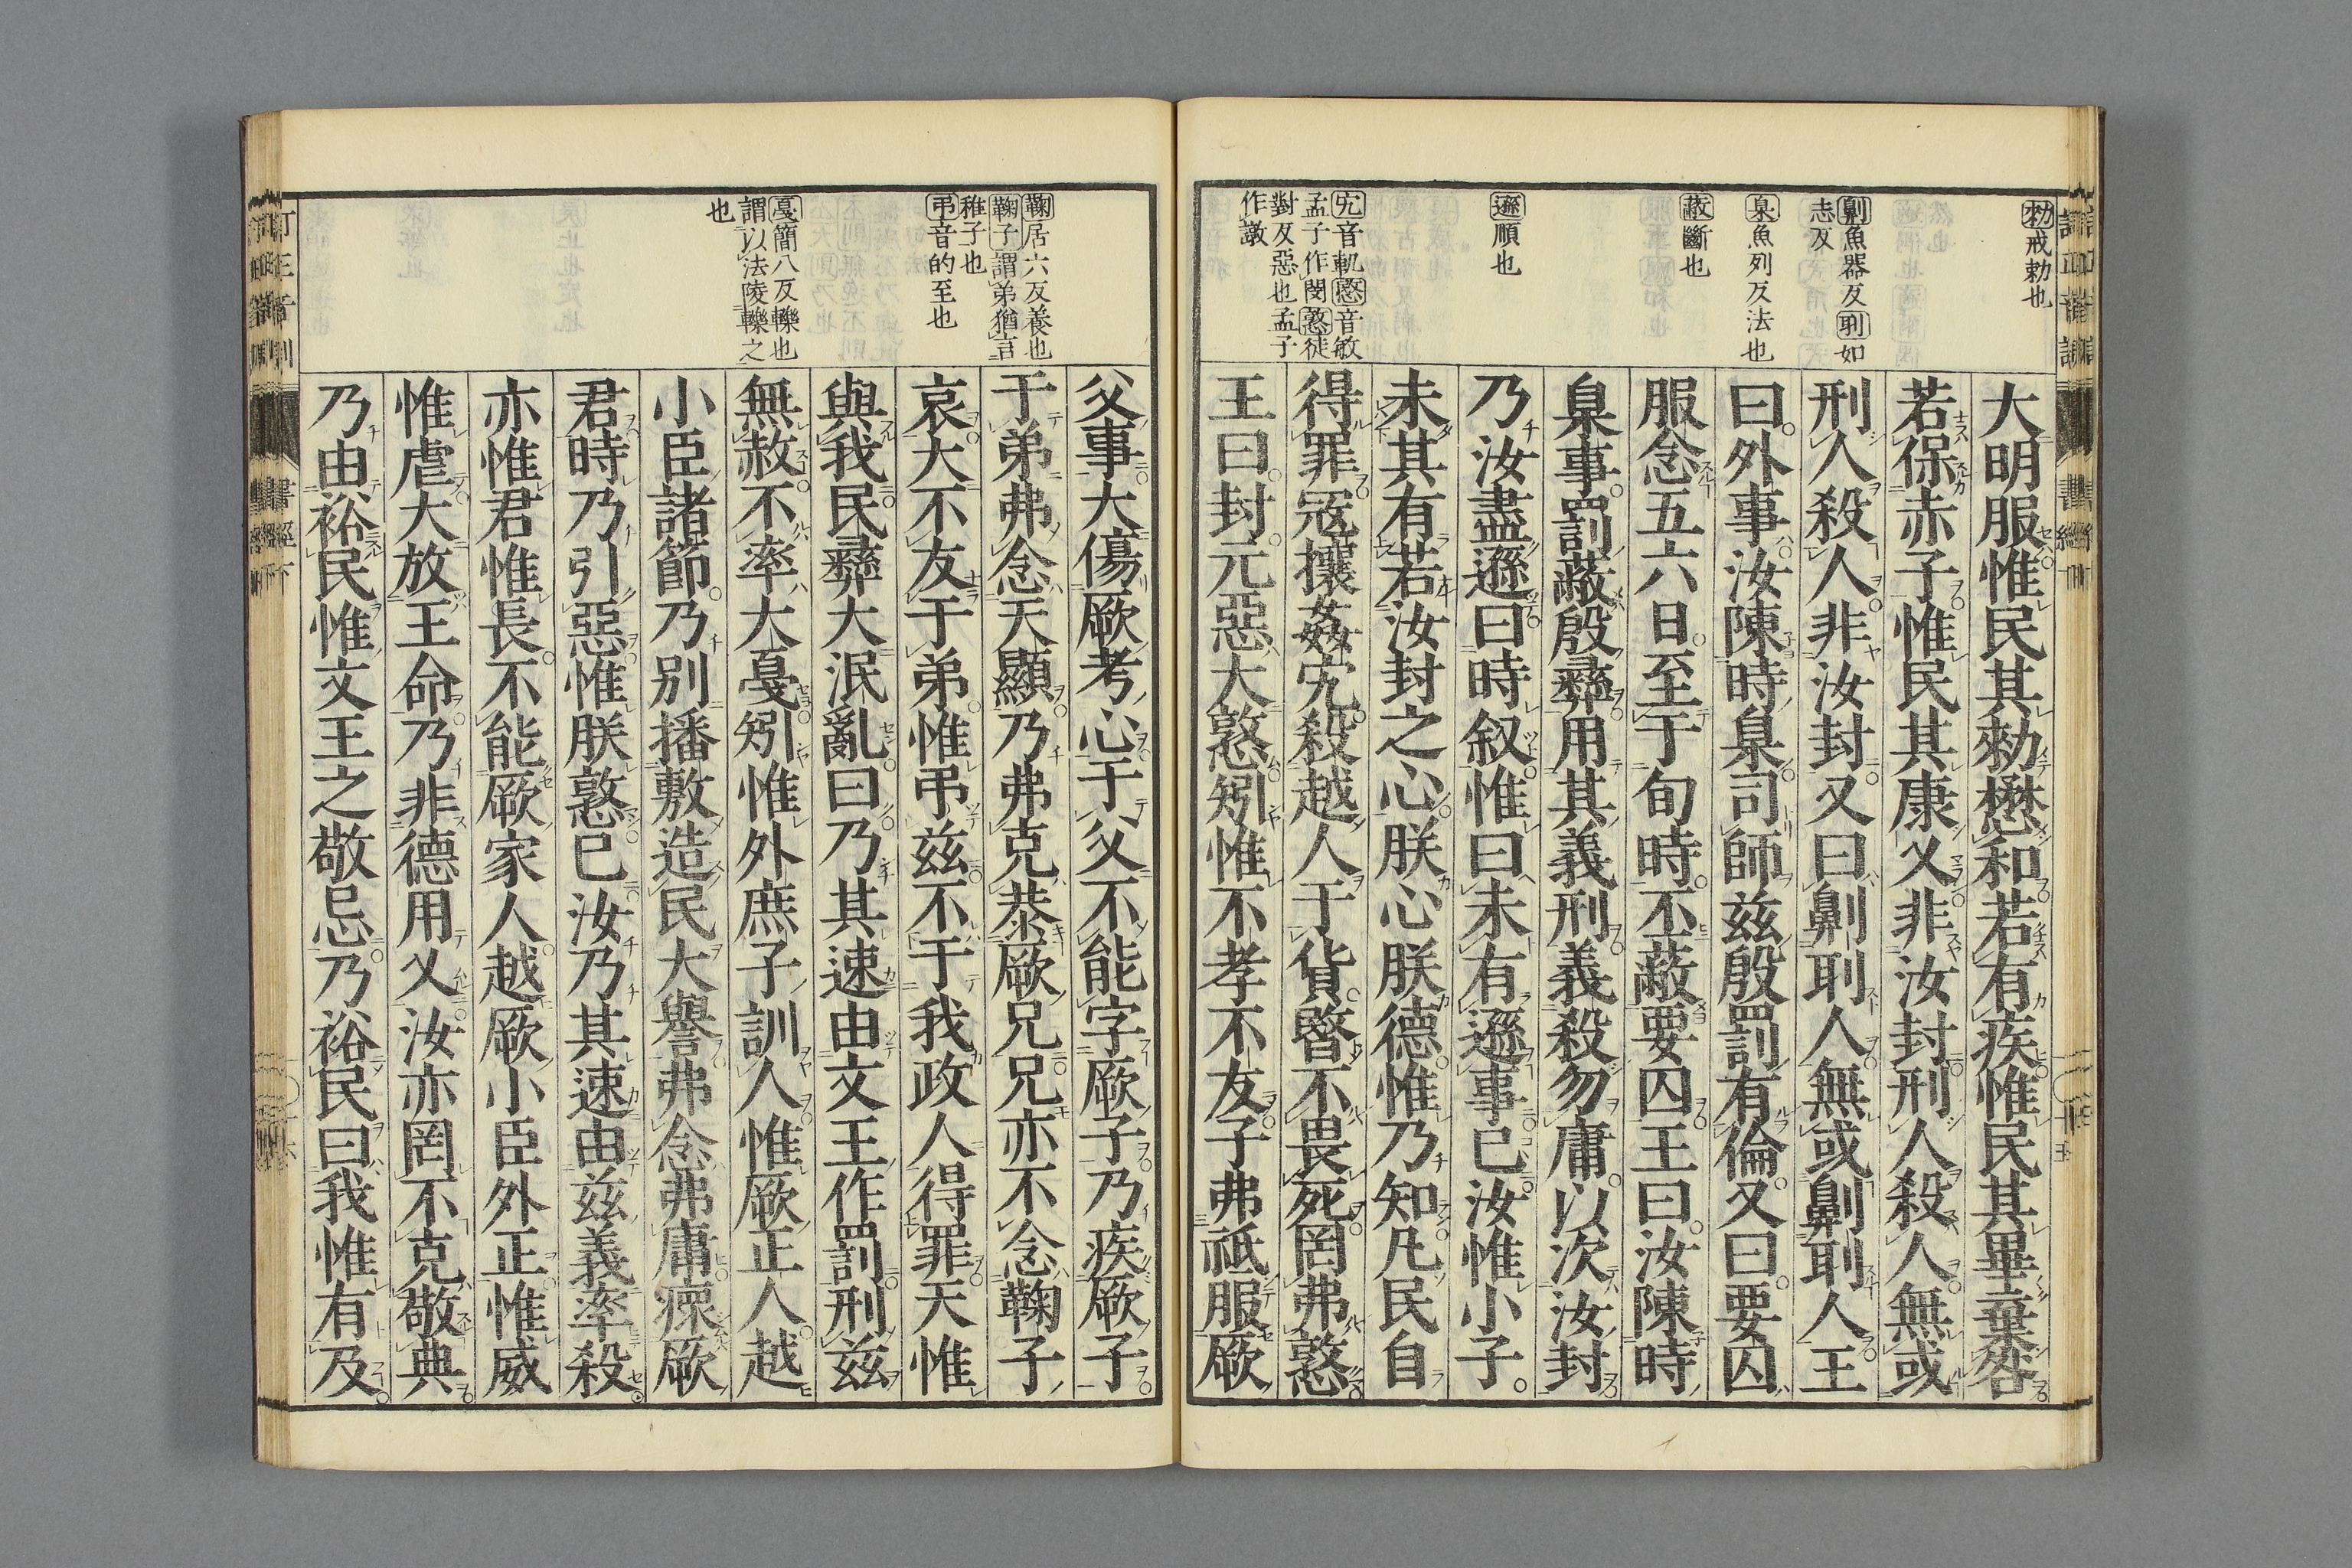 勑戒勅也
劓魚器反刵如
志反
臬魚列反法也
蔽斷也
遜順也
宄音軌暋音敏
孟子作閔憝徒
對反惡也孟子
作譈
大明服惟民其勑懋和若有疾惟民其畢棄咎
若保赤子惟民其康乂非汝封刑人殺人無或
刑人殺人非汝封又曰劓刵人無或劓刵人王
曰外事汝陳時臬司師茲殷罰有倫又曰要囚
服念五六日至于旬時丕蔽要囚王曰汝陳時
臬事罰蔽殷彝用其義刑義殺勿庸以次汝封
乃汝盡遜曰時叙惟曰未有遜事已汝惟小子
未其有若汝封之心朕心朕德惟乃知凡民自
得罪寇攘姦宄殺越人于貨暋不畏死罔弗憝
王曰封元惡大憝矧惟不孝不友子弗祗服厥
鞠居六反養也
鞠子謂弟猶言
稚子也
弔音的至也
戛簡八反轢也
謂以法陵轢之
也
父事大傷厥考心于父不能字厥子乃疾厥子
于弟弗念天顯乃弗克恭厥兄兄亦不念鞠子
哀大不友于弟惟弔茲不于我政人得罪天惟
與我民彝大泯亂曰乃其速由文王作罰刑茲
無赦不率大戛矧惟外庶子訓人惟厥正人越
小臣諸節乃別播敷造民大譽弗念弗庸瘝厥
君時乃引惡惟朕憝已汝乃其速由茲義率殺
亦惟君惟長不能厥家人越厥小臣外正惟威
惟虐大放王命乃非德用乂汝亦罔不克敬典
乃由裕民惟文王之敬忌乃裕民曰我惟有及